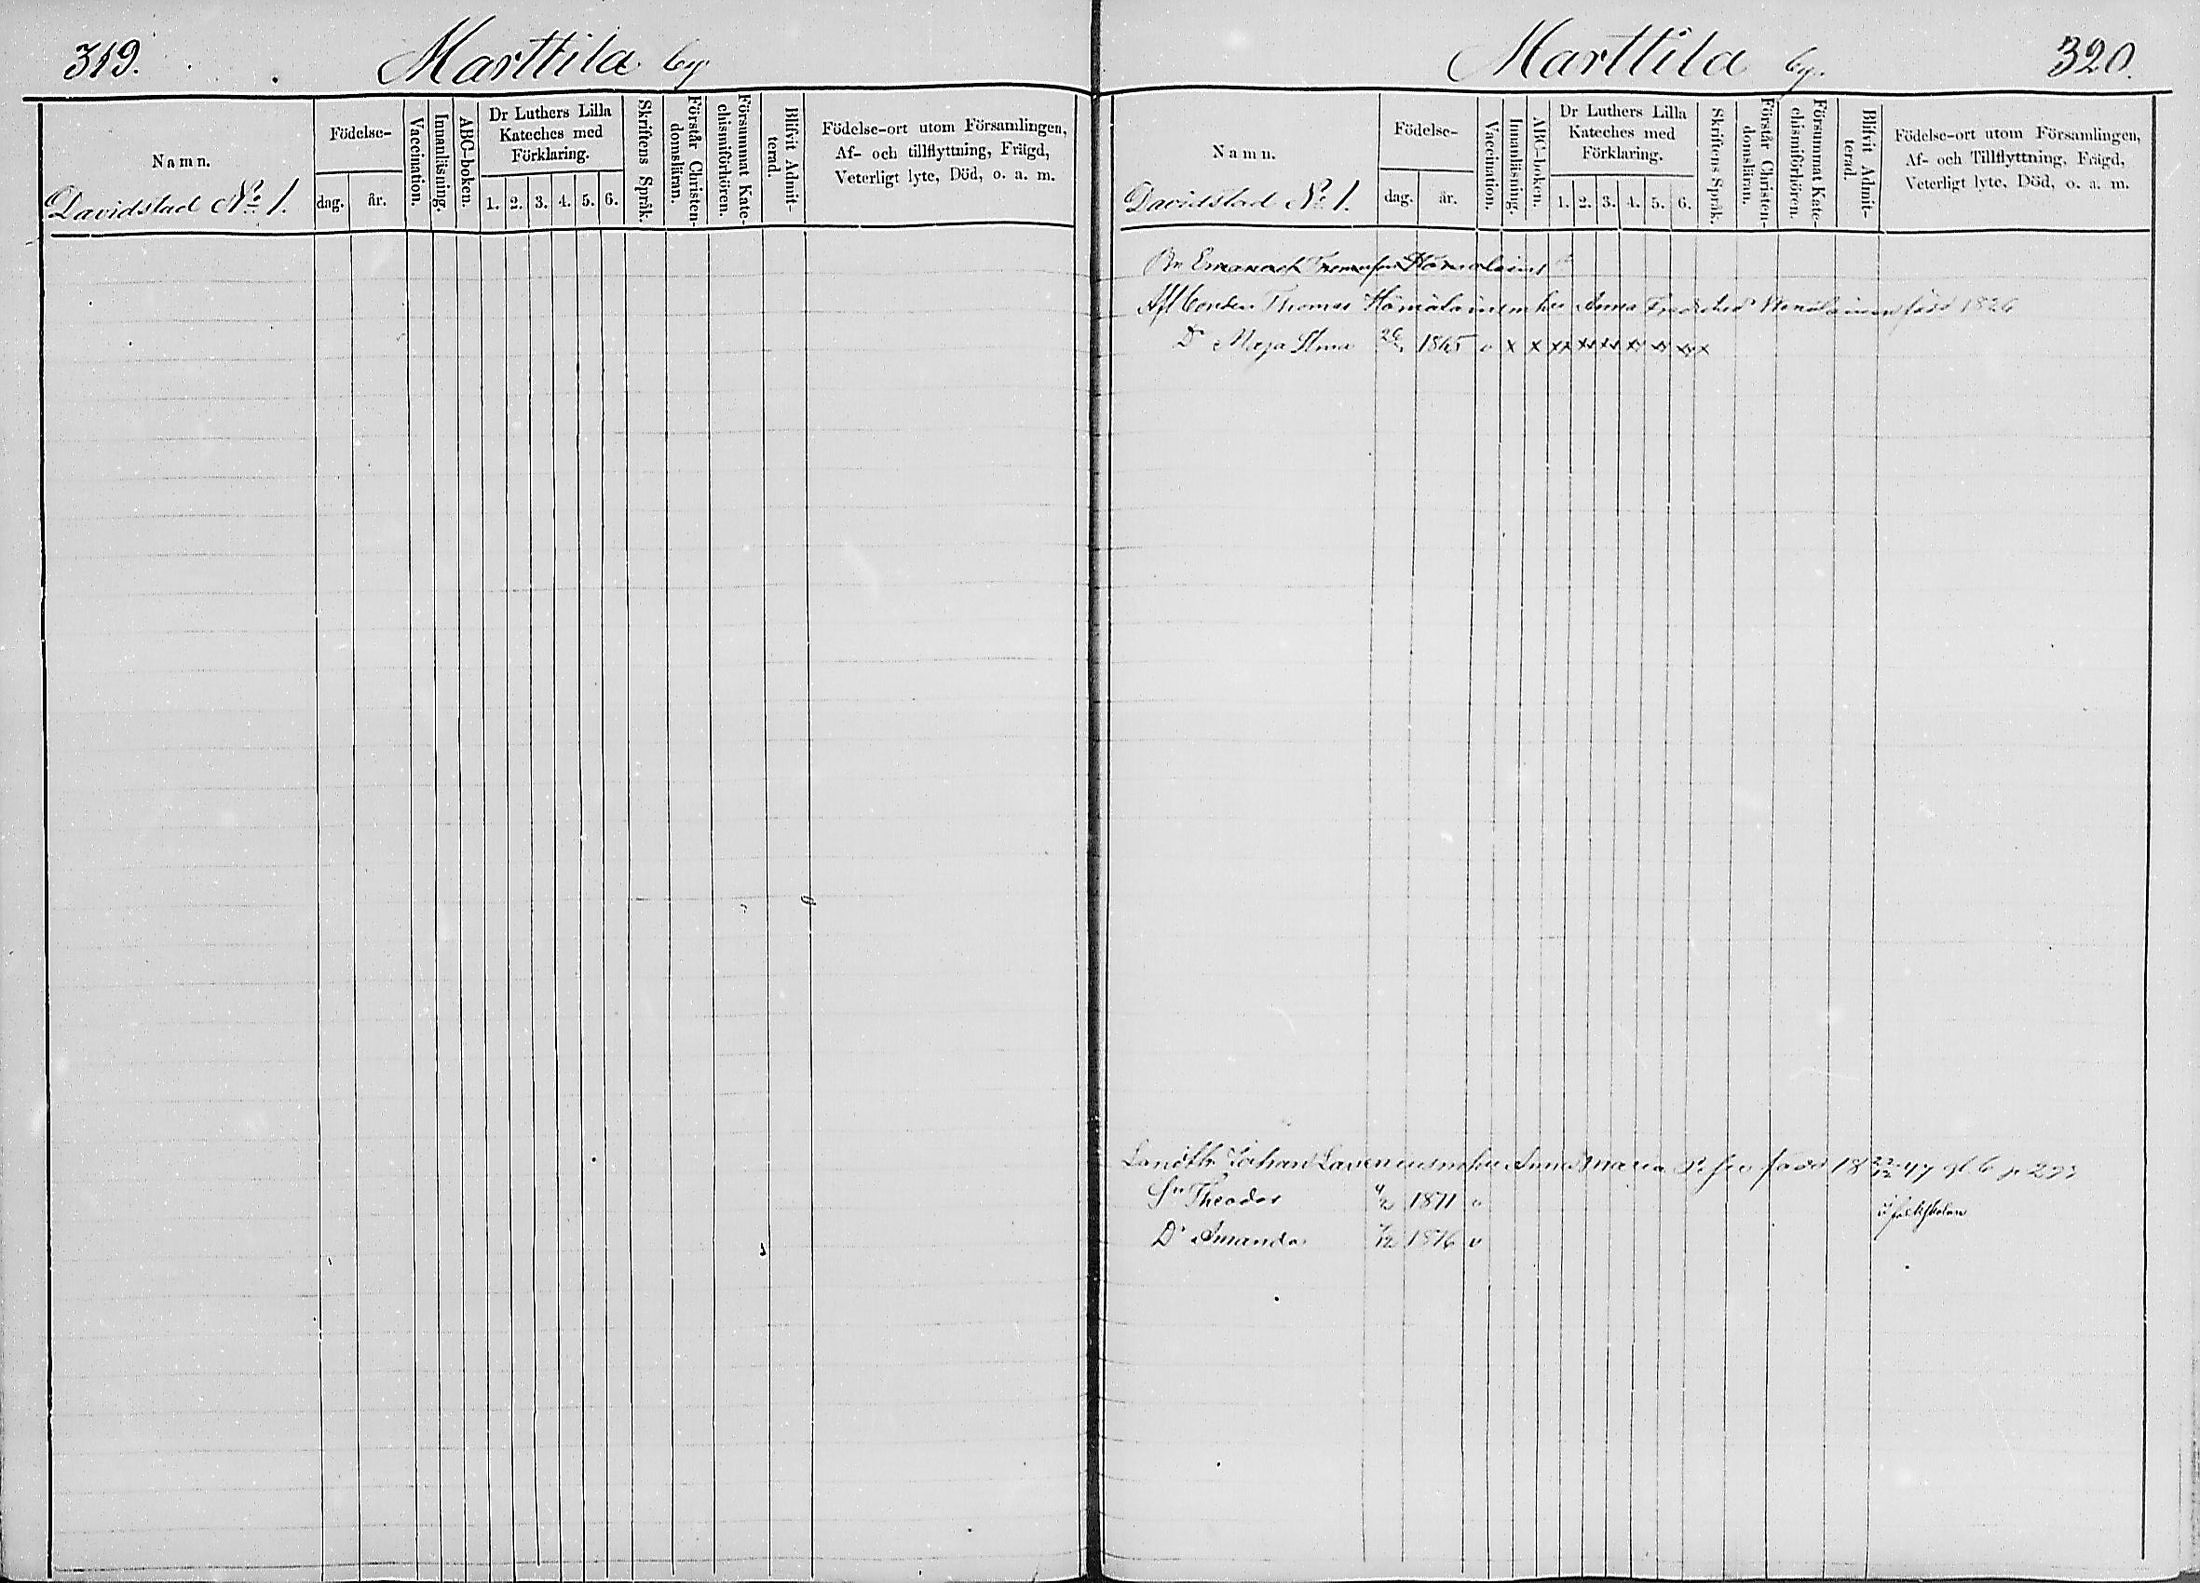 319. Marttila by
Namn.
Davidstad No 1.
Födelse-
dag. år.
Vaccination.
Innanläsning.
ABC-boken.
Dr Luthers Lilla
Kateches med
Förklaring.
1. 2. 3. 4. 5. 6.
Skriftens Språk.
Förstår Christen-
domsläran.
Försummat Kate-
chismiförhören.
Blifvit Admit-
terad.
Födelse-ort utom Församlingen,
Af- och tillflyttning, Frägd,
Veterligt lyte, Död, o. a. m.
Marttila by. 320.
Namn.
Davidstad No 1.
Födelse-
dag. år.
Vaccination.
Innanläsning.
ABC-boken.
Dr Luthers Lilla
Kateches med
Förklaring.
1. 2. 3. 4. 5. 6.
Skriftens Språk.
Förstår Christen-
domsläran.
Försummat Kate-
chismiförhören.
Blifvit Admit-
terad.
Födelse-ort utom Församlingen,
Af- och Tillflyttning, Frägd,
Veterligt lyte, Död, o. a. m.
Thomas Hämäläinen hu Anna född 1826
Dr Maja Stina 1865 v x x xx xx xx xx xx xx x
Johan Anna Maria född 18 47
Sn Theodor 1871 v i folkskolan
Dr Amanda 1876 v